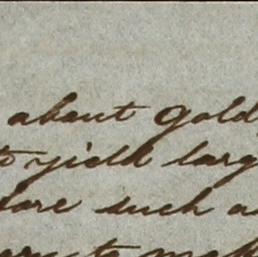 about gold
to yield larg
are such a
to mak